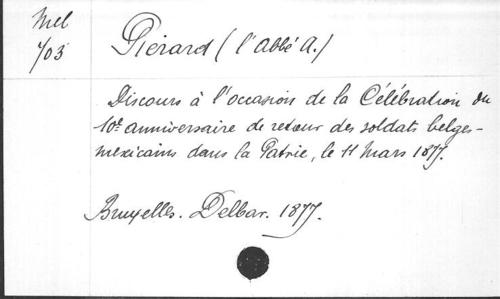 Mel
703
Piérard (l'abbé A.)
Discours à l'occasion de la Célébration du
10e anniversaire de retour des soldats belges-
mexicains dans la Patrie, le 11 Mars 1877.
Bruxelles. Delbar. 1877.